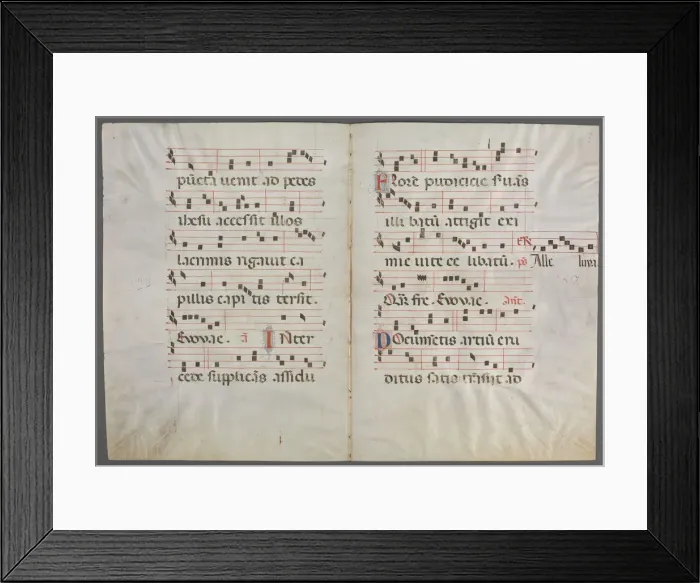 pūcta uenit ad pedes
ihesu accessit illos
lacrimis rigauit ca
pillis capi tis tersit.
Evovae. a̅ INter
cede supplicās assidu
FLore pudicicie suūs
illi batū attigit exi
mie uite ce libatū. ps Alle luia
Evovae. Ant.
DOcumētis artiū eru
ditus satis trāsijt ad